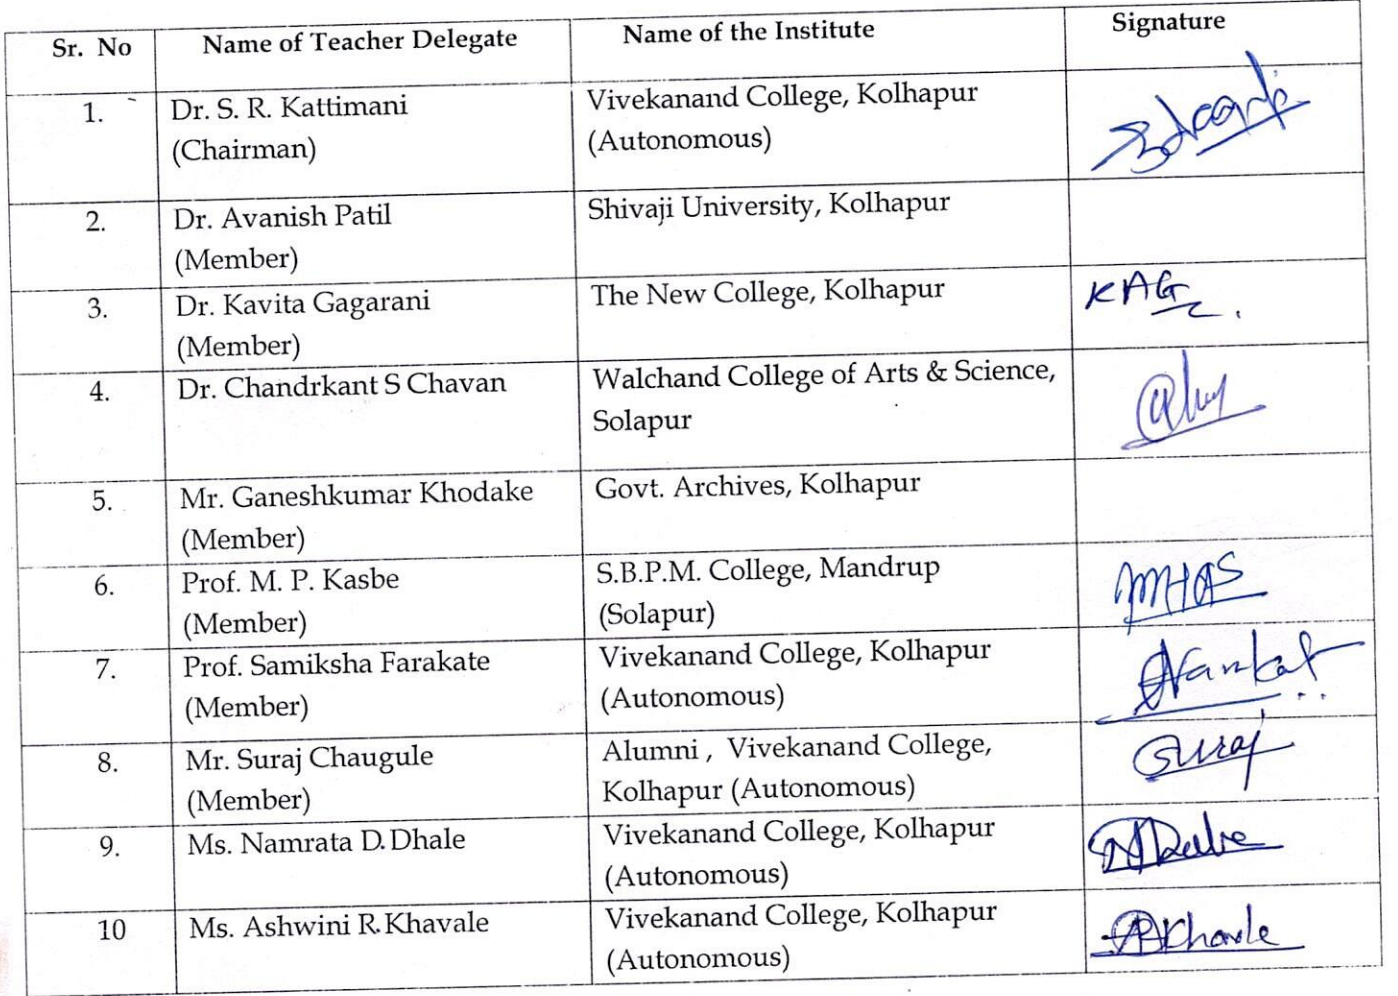 Sr. No Name of Teacher Delegate Name of the Institute Signature
1. Dr. S. R. Kattimani Vivekanand College, Kolhapur
(Chairman) (Autonomous)
2. Dr. Avanish Patil Shivaji University, Kolhapur
(Member)
3. Dr. Kavita Gagarani The New College, Kolhapur KAG
(Member)
4. Dr. Chandrkant S Chavan Walchand College of Arts & Science,
Solapur
5. Mr. Ganeshkumar Khodake Govt. Archives, Kolhapur
(Member)
6. Prof. M. P. Kasbe S.B.P.M. College, Mandrup
(Member) (Solapur)
7. Prof. Samiksha Farakate Vivekanand College, Kolhapur
(Member) (Autonomous)
8. Mr. Suraj Chaugule Alumni , Vivekanand College, Suraj
(Member) Kolhapur (Autonomous)
9. Ms. Namrata D. Dhale Vivekanand College, Kolhapur
(Autonomous)
10 Ms. Ashwini R. Khavale Vivekanand College, Kolhapur
(Autonomous)